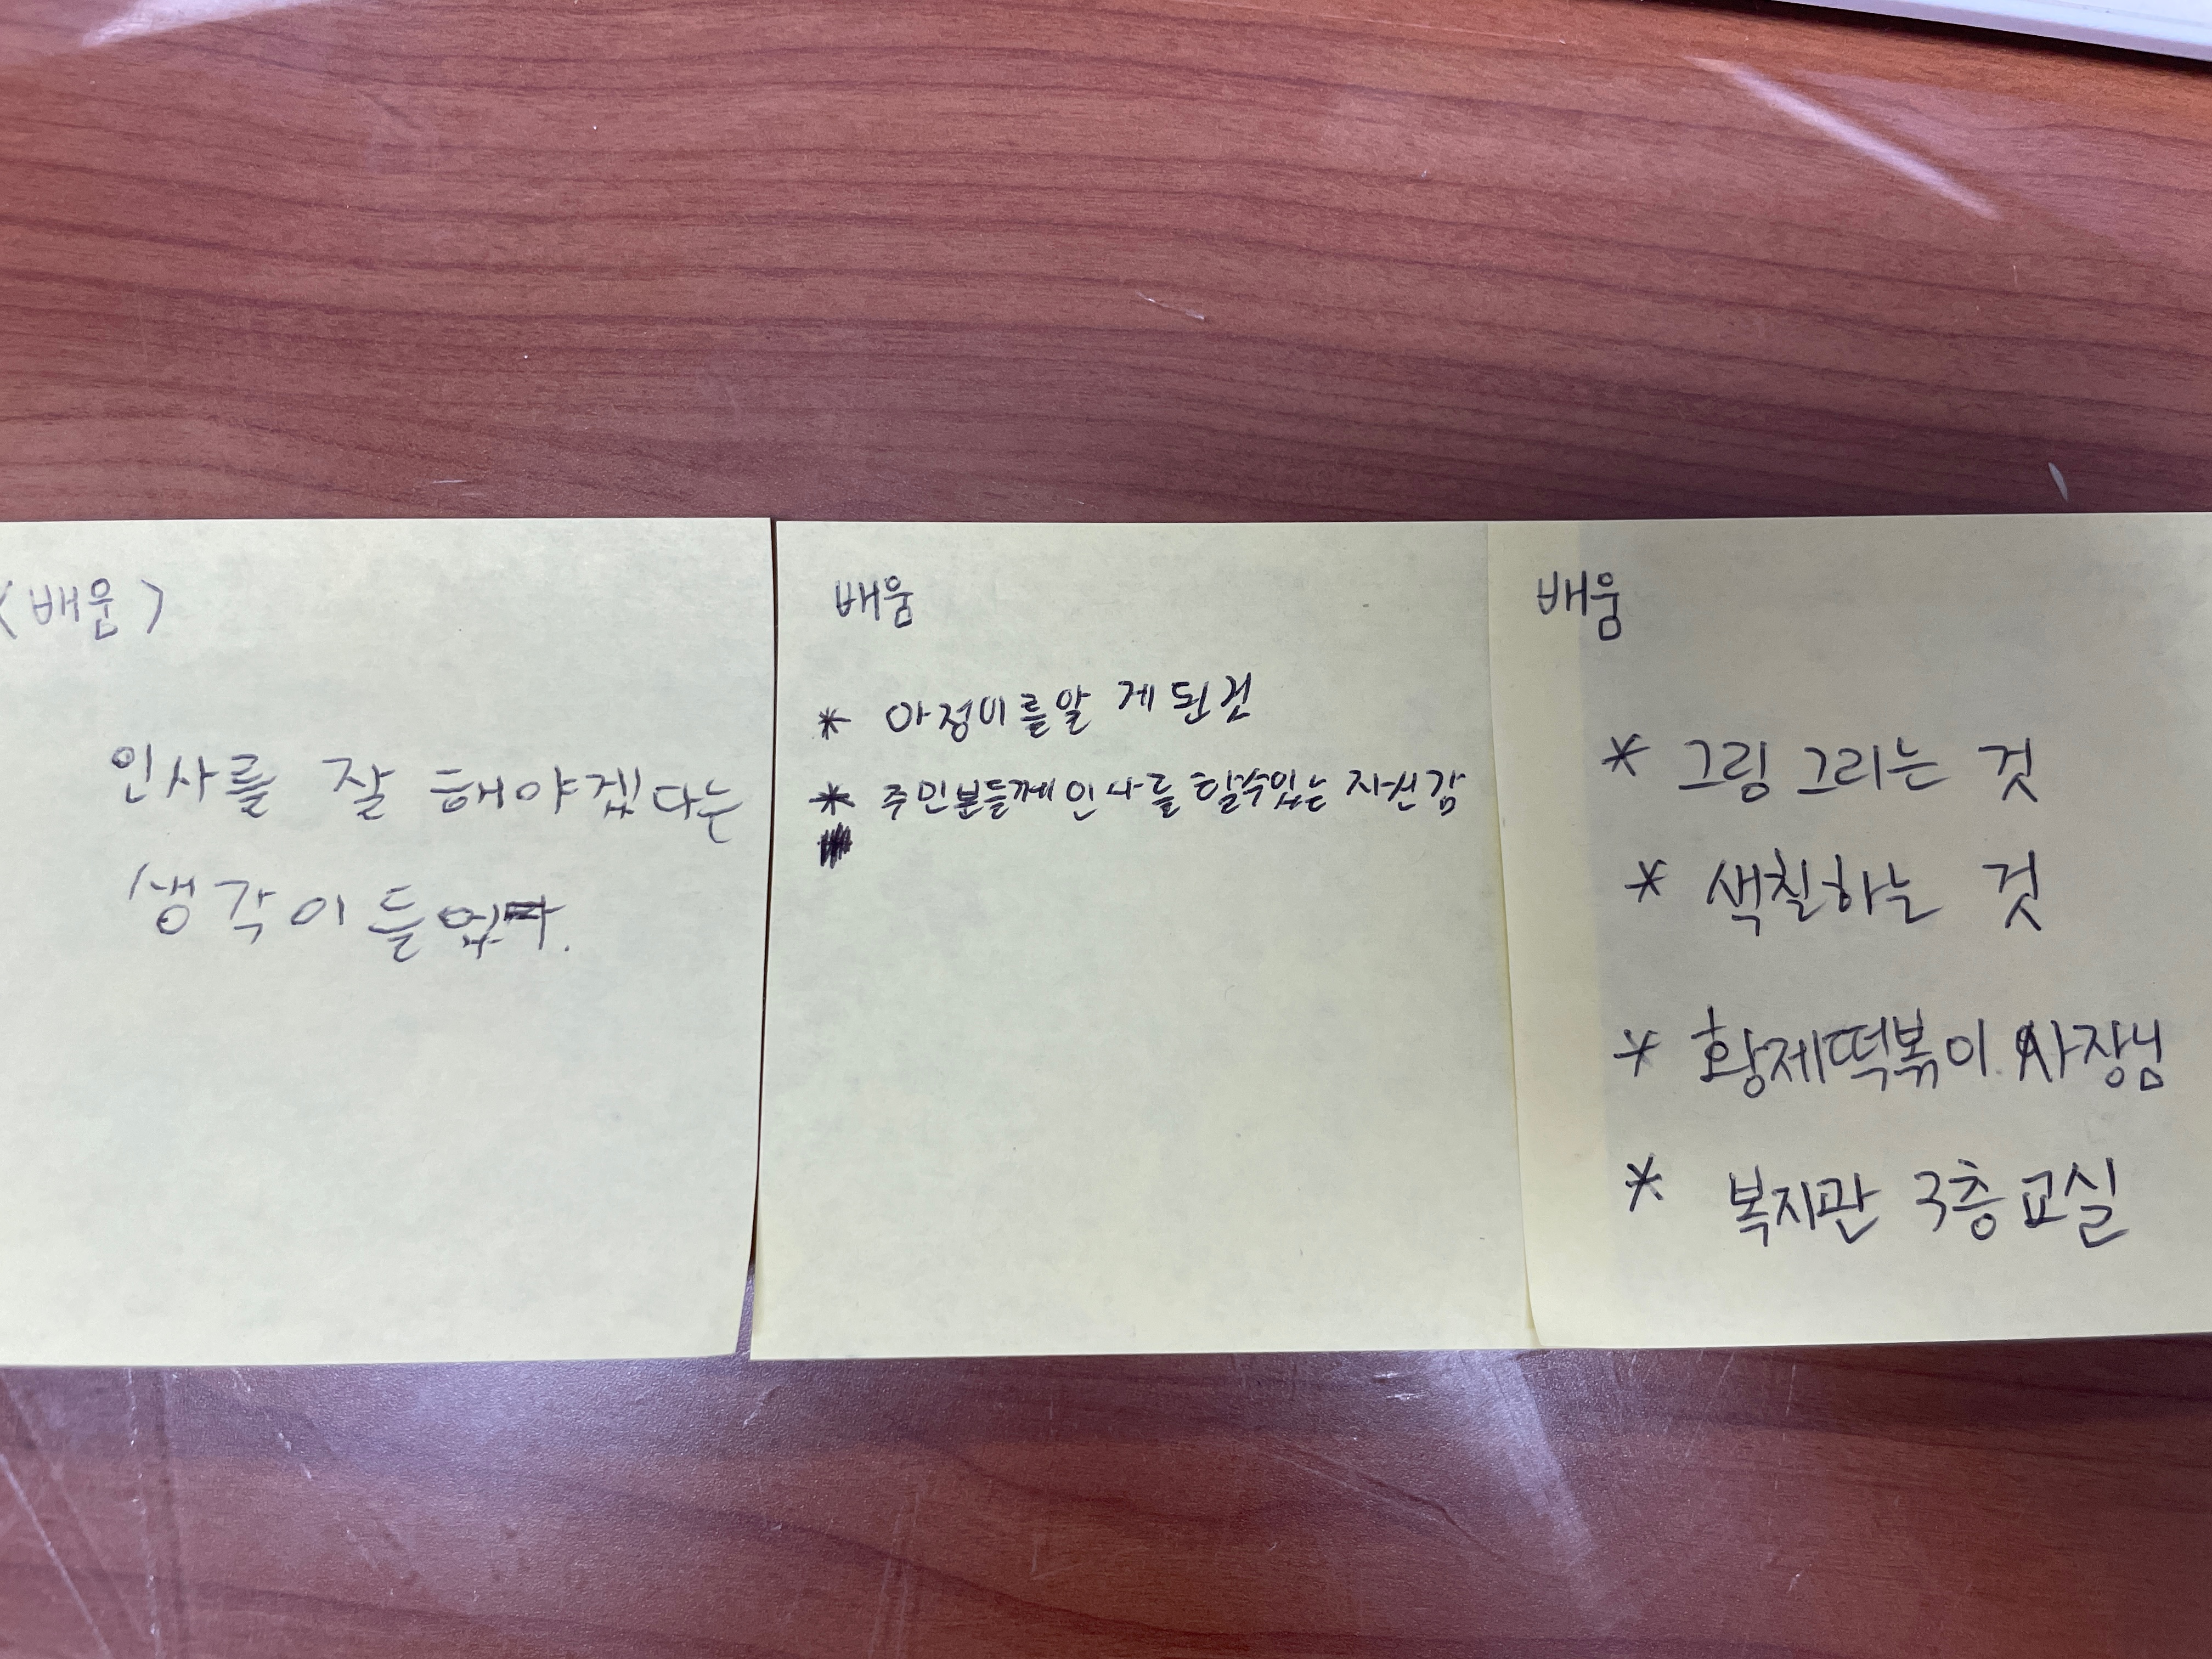 <배움>
인사를 잘 해야겠다는
생각이 들었다.
배움
* 아정이를 알 게 된 것
* 주민분들께 인사를 할 수 있는 자신감
배움
* 그림 그리는 것
* 색칠하는 것
* 황제떡볶이 사장님
* 복지관 3층 교실